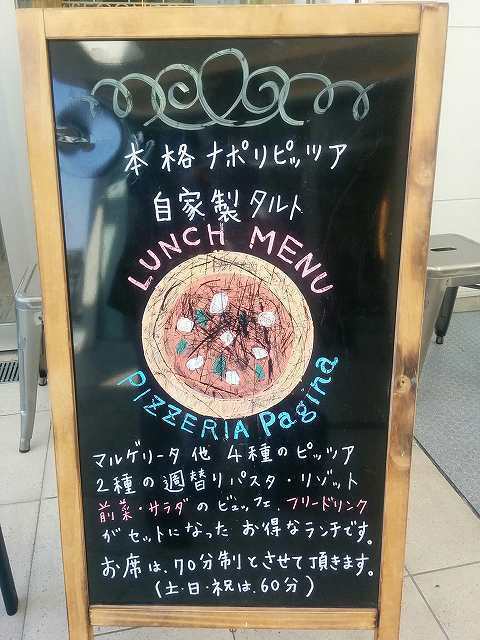 本格ナポリピッツア
自家製タルト
LUNCH MENU
PIZZERIA Pagina
マルゲリータ他4種のピッツア
2種の週替りパスタ・リゾット
前菜・サラダのビュッフェ、フリードリンク
がセットになったお得なランチです。
お席は、70分制とさせて頂きます。
(土・日・祝は、60分)